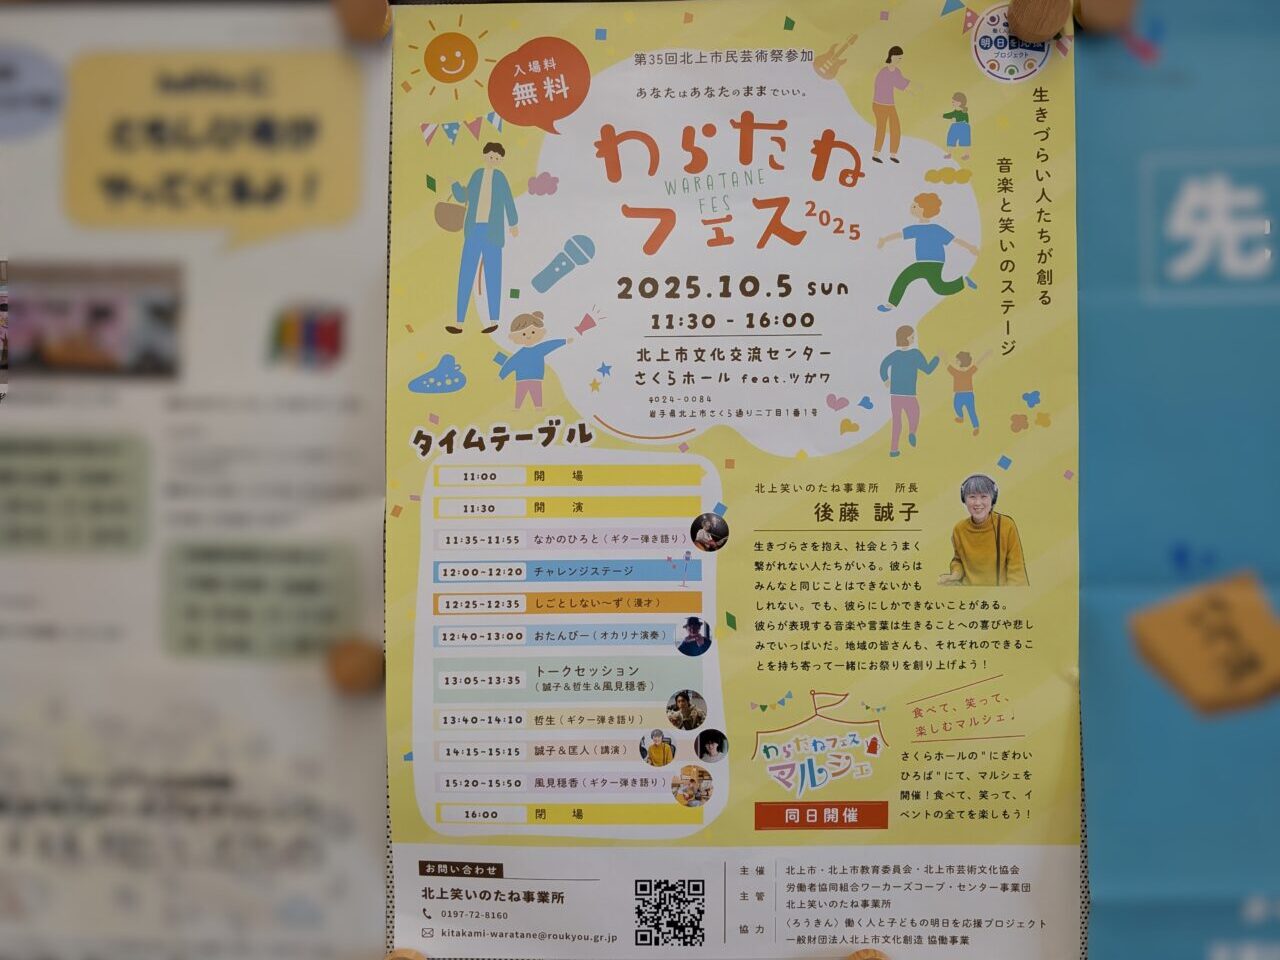 入場料
無料
第35回北上市民芸術祭参加
あなたはあなたのままでいい。
わらたね
WARATANE
FES
フェス2025
2025.10.5 sun
11:30 - 16:00
北上市文化交流センター
さくらホール feat.ツガワ
〒024-0084
岩手県北上市さくら通り二丁目1番1号
明日を応援
プロジェクト
生きづらい人たちが創る
音楽と笑いのステージ
タイムテーブル
11:00 開場
11:30 開演
11:35~11:55 なかのひろと(ギター弾き語り)
12:00~12:20 チャレンジステージ
12:25~12:35 しごとしない~ず(漫才)
12:40~13:00 おたんびー(オカリナ演奏)
13:05~13:35 トークセッション
(誠子&哲生&風見穏香)
13:40~14:10 哲生(ギター弾き語り)
14:15~15:15 誠子&匡人(講演)
15:20~15:50 風見穏香(ギター弾き語り)
16:00 閉場
北上笑いのたね事業所 所長
後藤 誠子
生きづらさを抱え、社会とうまく
繋がれない人たちがいる。彼らは
みんなと同じことはできないかも
しれない。でも、彼らにしかできないことがある。
彼らが表現する音楽や言葉は生きることへの喜びや悲し
みでいっぱいだ。地域の皆さんも、それぞれのできるこ
とを持ち寄って一緒にお祭りを創り上げよう!
わらたねフェス
マルシェ
同日開催
食べて、笑って、
楽しむマルシェ♩
さくらホールの"にぎわい
ひろば"にて、マルシェを
開催!食べて、笑って、イ
ベントの全てを楽しもう!
お問い合わせ
北上笑いのたね事業所
0197-72-8160
kitakami-waratane@roukyou.gr.jp
主催 北上市・北上市教育委員会・北上市芸術文化協会
主管 労働者協同組合ワーカーズコープ・センター事業団
北上笑いのたね事業所
協力 〈ろうきん〉働く人と子どもの明日を応援プロジェクト
一般財団法人北上市文化創造 協働事業
先